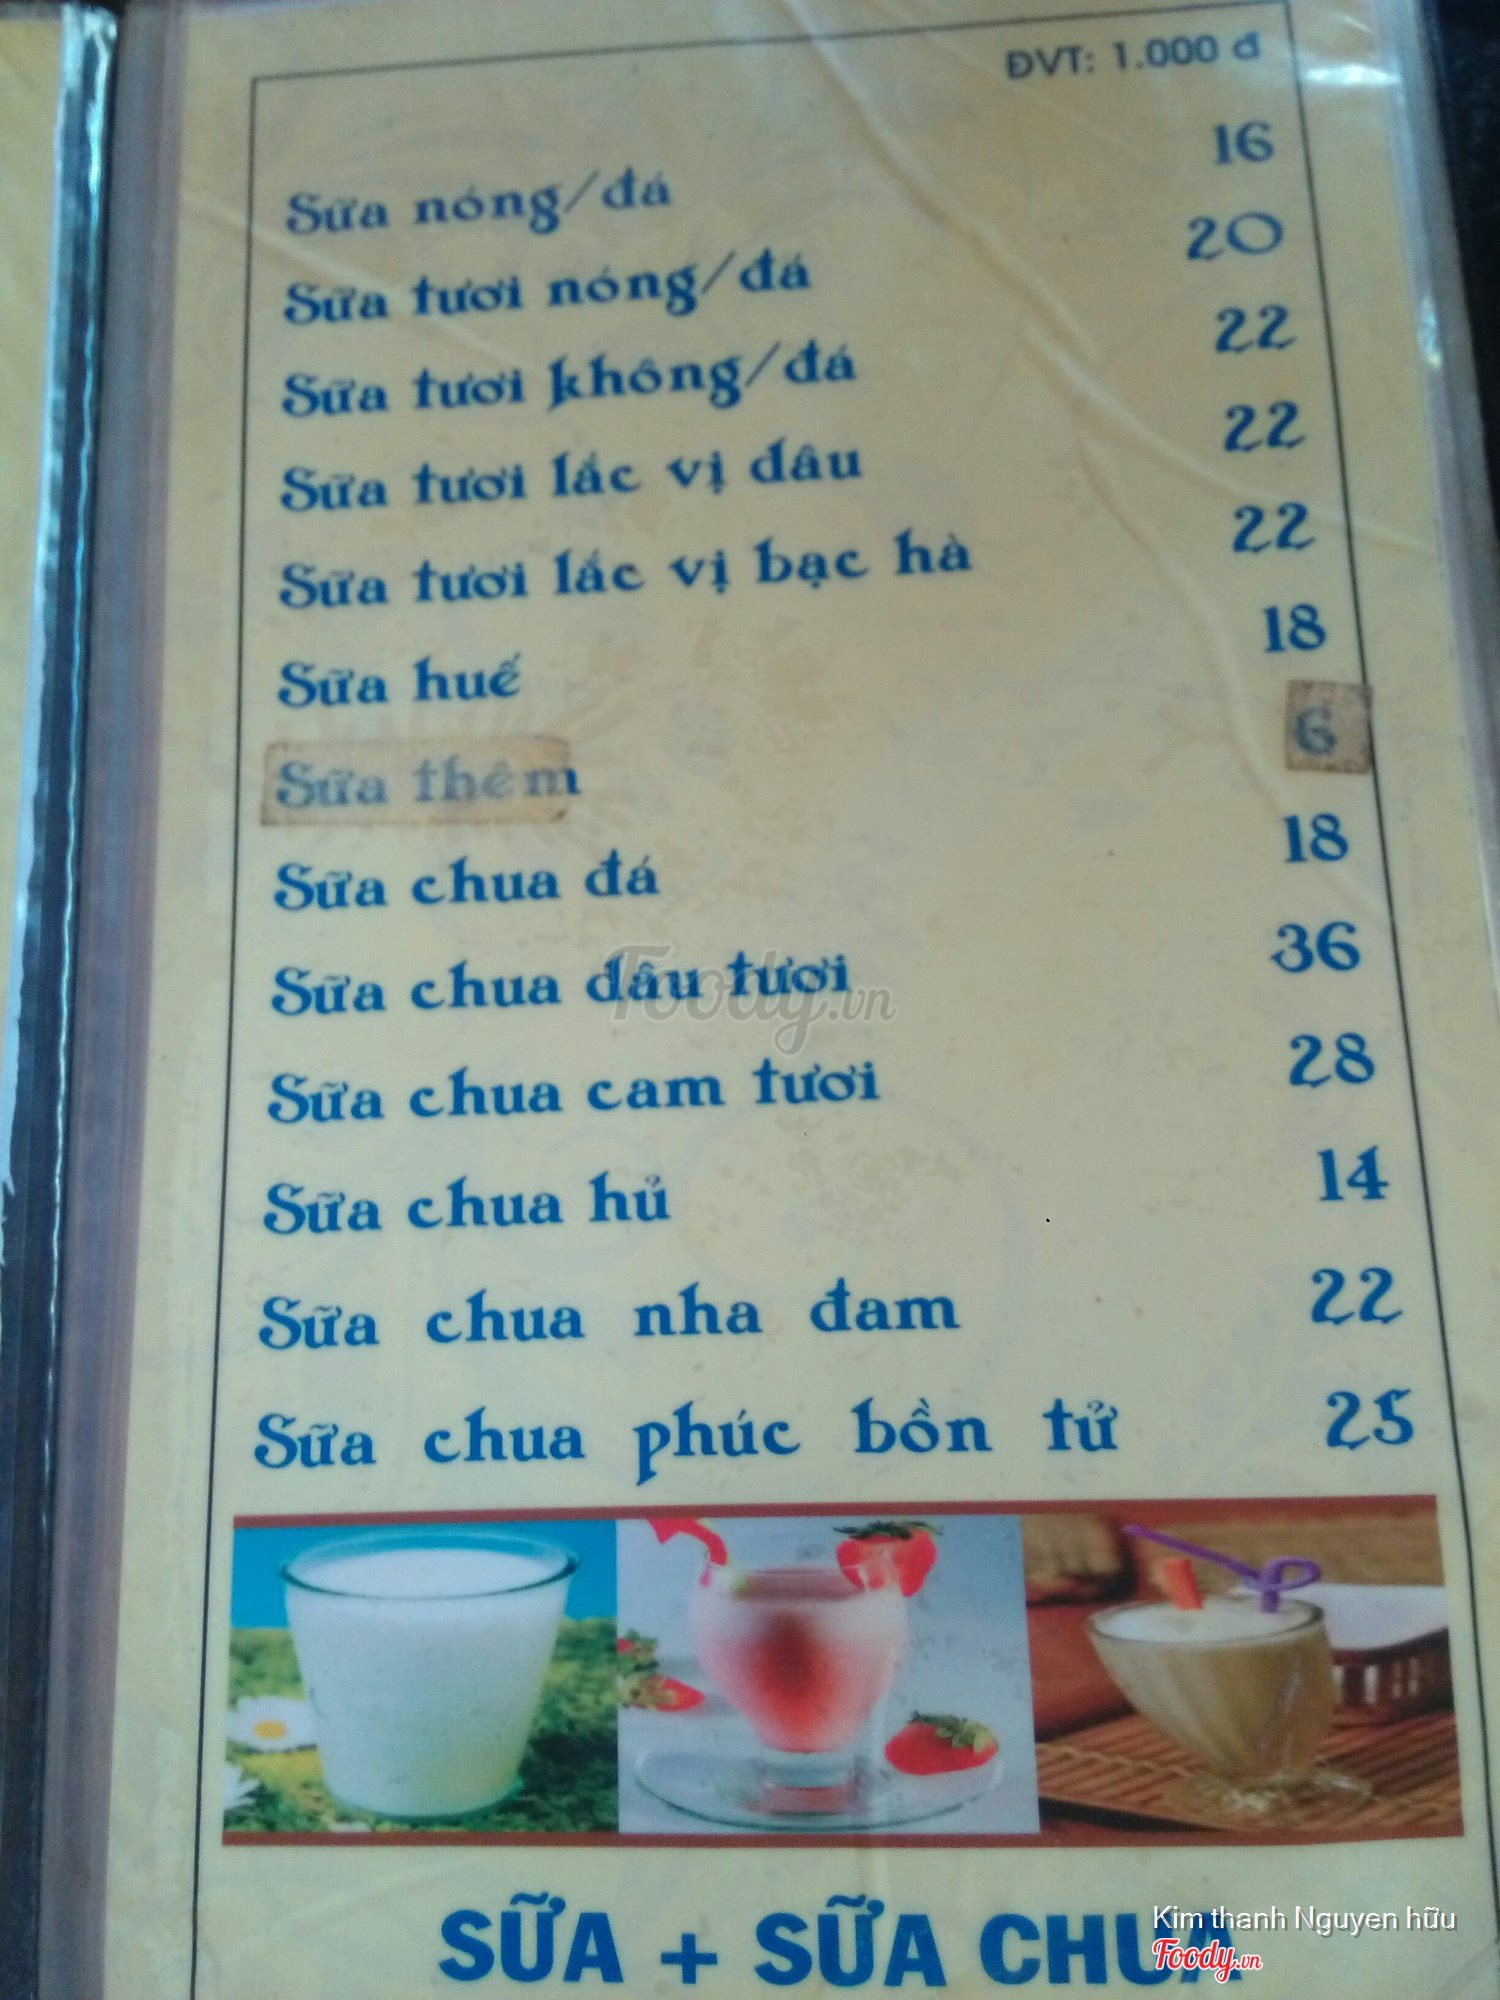 ĐVT: 1.000 đ
Sữa nóng/đá 16
Sữa tươi nóng/đá 20
Sữa tươi không/đá 22
Sữa tươi lắc vị dâu 22
Sữa tươi lắc vị bạc hà 22
Sữa huế 18
Sữa thêm 6
Sữa chua đá 18
Sữa chua dâu tươi 36
Sữa chua cam tươi 28
Sữa chua hủ 14
Sữa chua nha đam 22
Sữa chua phúc bồn tử 25
SỮA + SỮA CHUA
Foody.vn
Kim thanh Nguyen hữu
Foody.vn